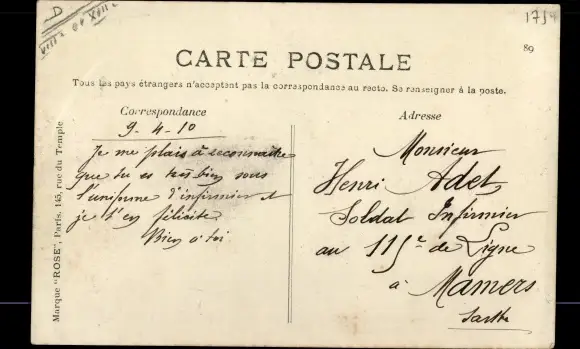 D
VIIIe et XIIIe
1754
CARTE POSTALE
89
Tous les pays étrangers n'acceptent pas la correspondance au recto. Se renseigner à la poste.
Correspondance
9-4-10
Je me plais à reconnaître
que tu es très bien sous
l'uniforme d'infirmier et
je t'en félicite
Bien à toi
Adresse
Monsieur
Henri Adet
Soldat Infirmier
au 115e de Ligne
à Mamers
Sarthe
Marque "ROSE", Paris, 145, rue du Temple